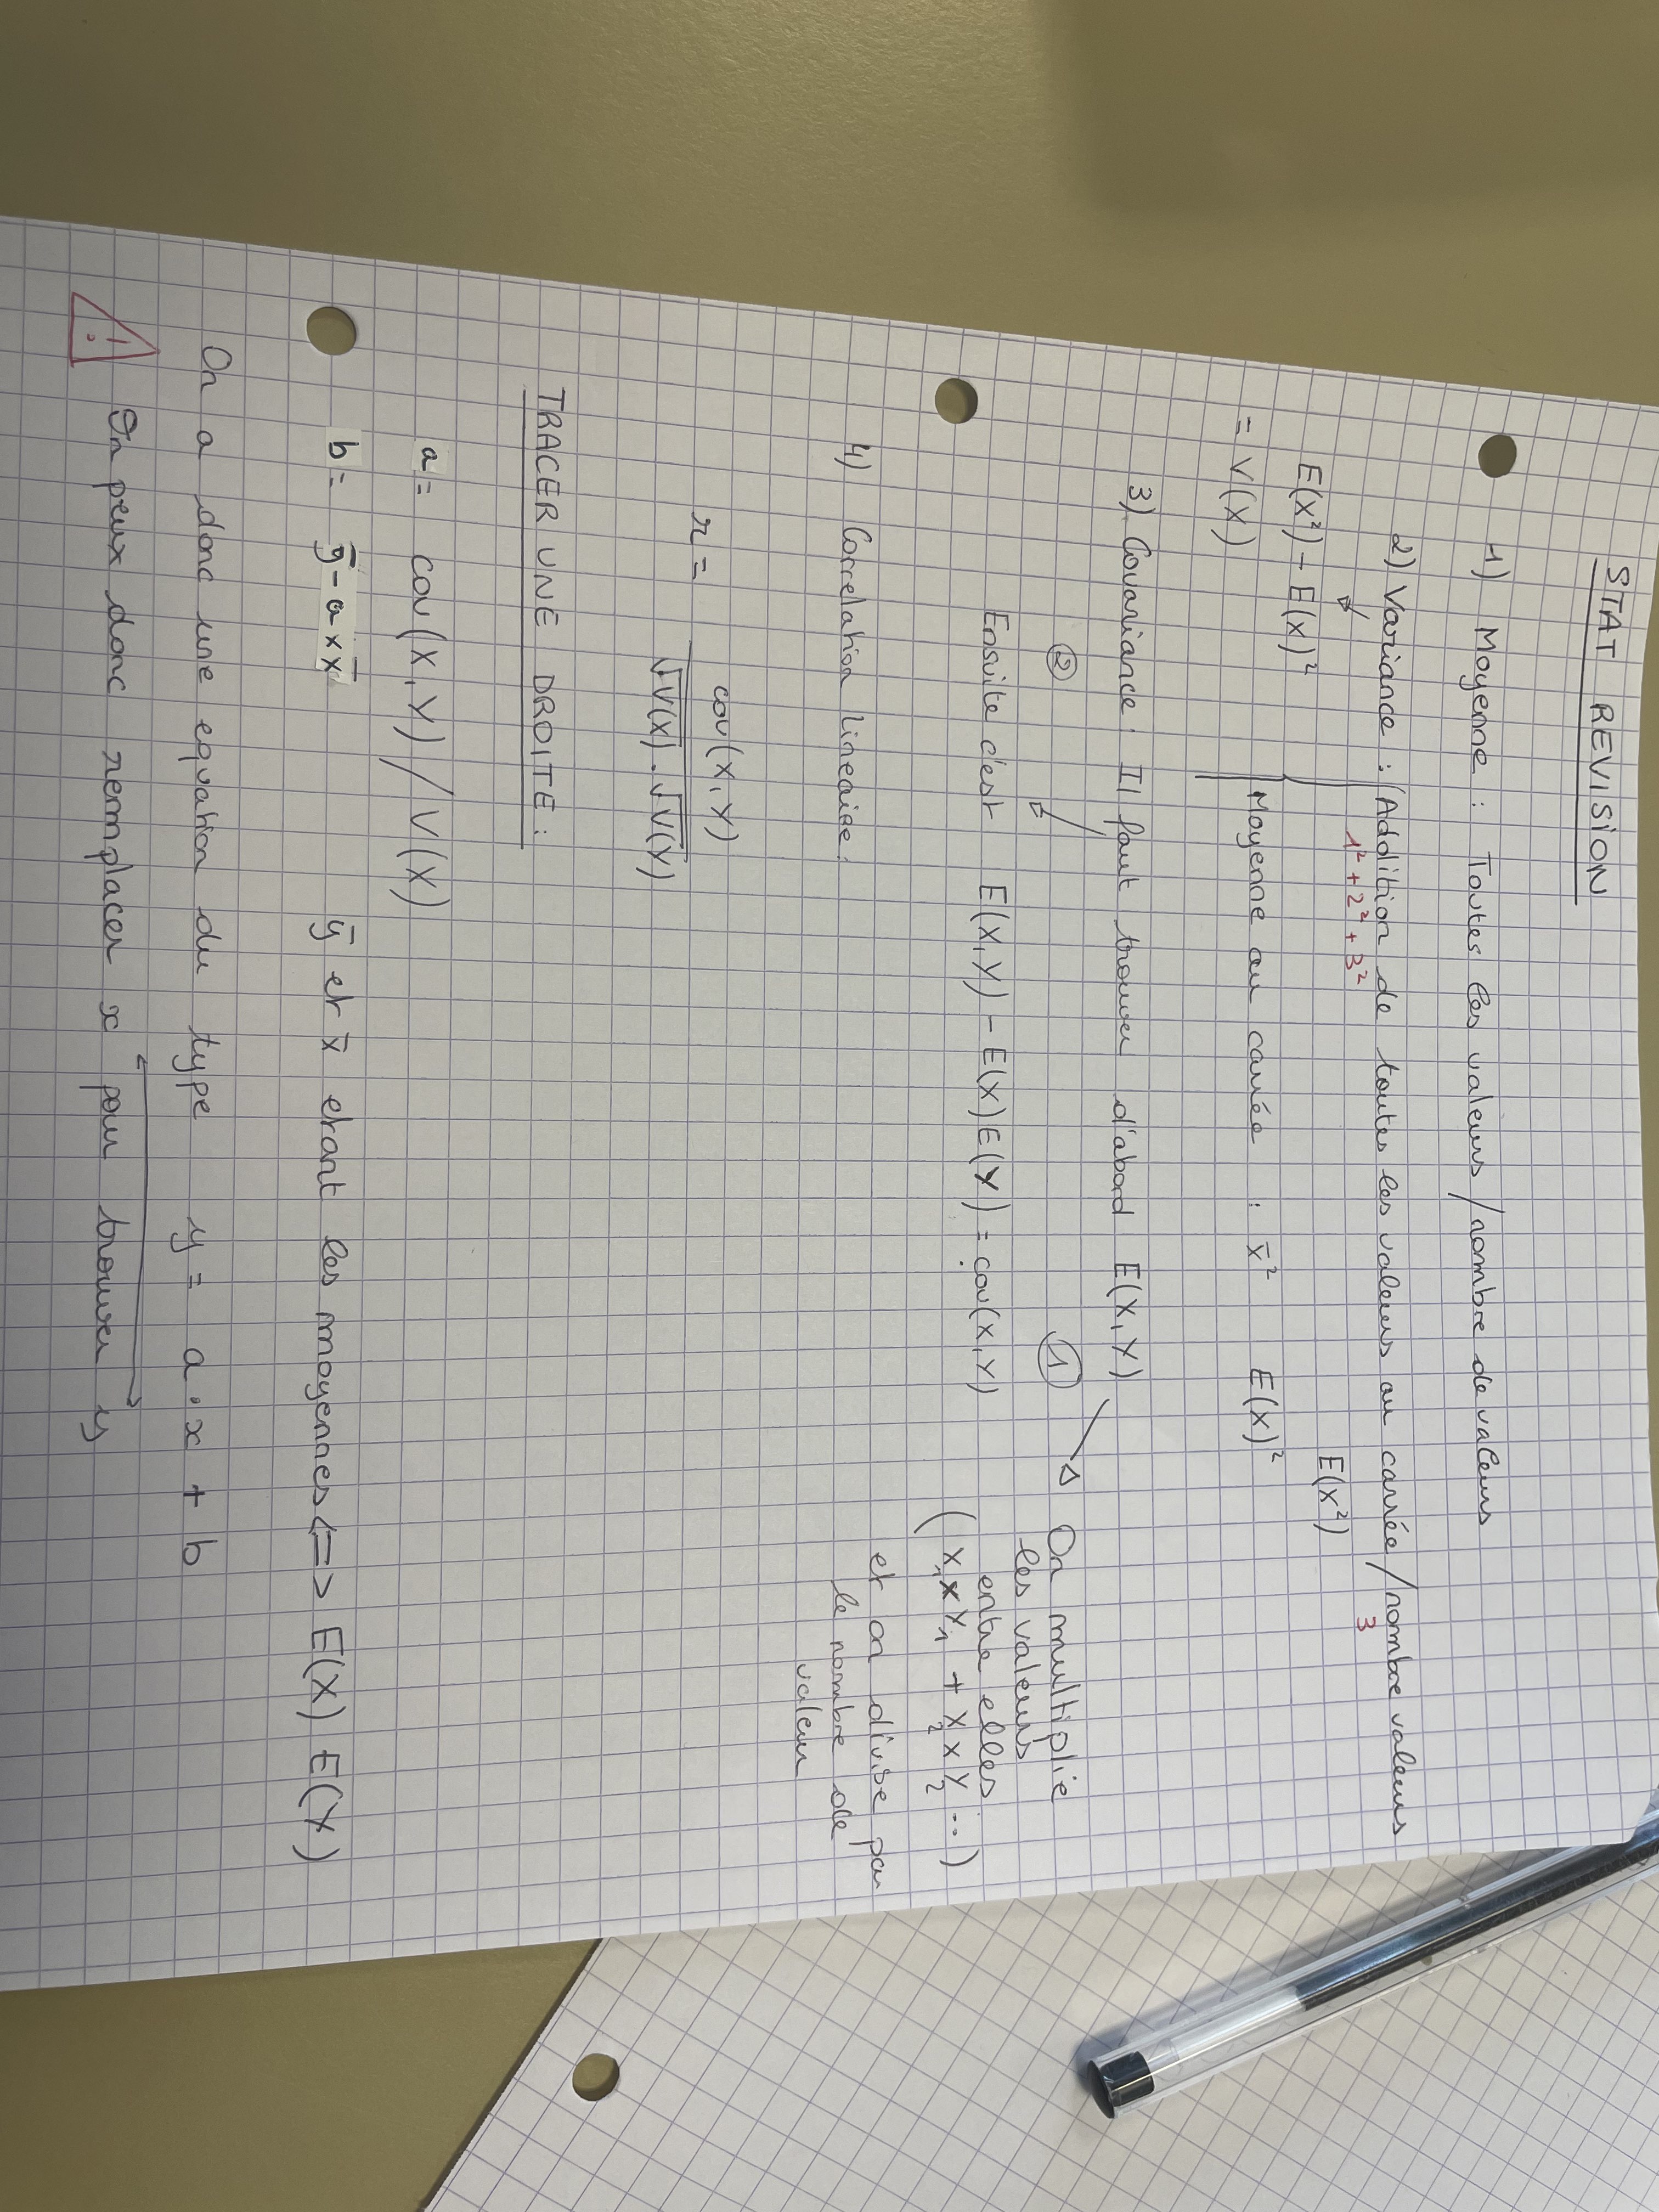 STAT REVISION
1) Moyenne : Toutes les valeurs / nombre de valeurs
2) Variance : (Addition de toutes les valeurs au carrée / nombre valeurs
1² + 2² + 3² 3
E(x²)
E(x²) - E(x)²
Moyenne au carrée : x̄² E(x)²
= V(X)
3) Covariance : Il faut trouver d'abord E(X,Y)
② ① On multiplie
les valeurs
entre elles
(x₁ x Y₁ + X₂ x Y₂ ...)
et on divise par
le nombre de
valeur
Ensuite c'est E(X,Y) - E(X)E(Y) = cov(X,Y)
4) Correlation lineaire :
r = cov(X,Y)
√V(X) . √V(Y)
TRACER UNE DROITE :
a = cov(X,Y) / V(X)
b = ȳ - a x x̄ ȳ et x̄ etant les moyennes <=> E(X) E(Y)
On a donc une equation du type y = a . x + b
! On peux donc remplacer x pour trouver y